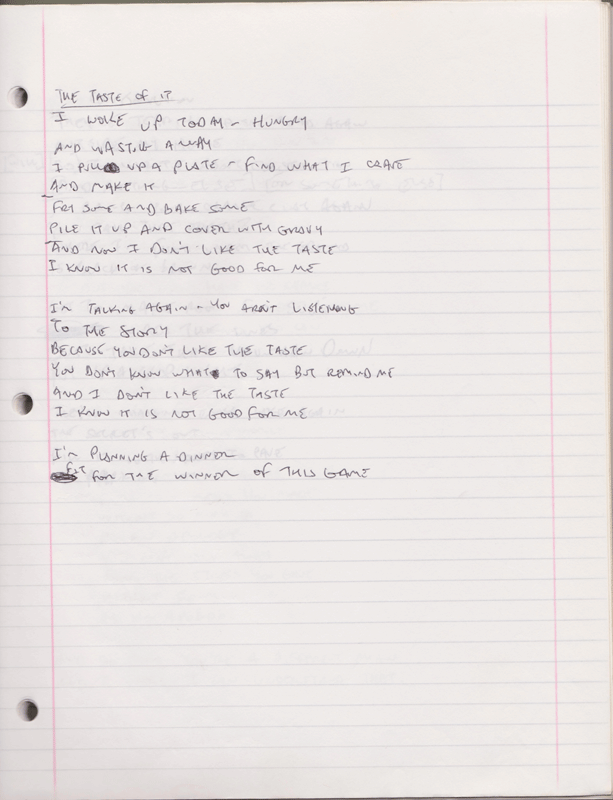 THE TASTE OF IT
I WOKE UP TODAY - HUNGRY
AND WASTING AWAY
I PULL UP A PLATE - FIND WHAT I CRAVE
AND MAKE IT
FRY SOME AND BAKE SOME
PILE IT UP AND COVER WITH GRAVY
AND NOW I DON'T LIKE THE TASTE
I KNOW IT IS NOT GOOD FOR ME
I'M TALKING AGAIN - YOU AREN'T LISTENING
TO THE STORY
BECAUSE YOU DON'T LIKE THE TASTE
YOU DON'T KNOW WHAT TO SAY BUT REMIND ME
AND I DON'T LIKE THE TASTE
I KNOW IT IS NOT GOOD FOR ME
I'M PLANNING A DINNER
FIT FOR THE WINNER OF THIS GAME